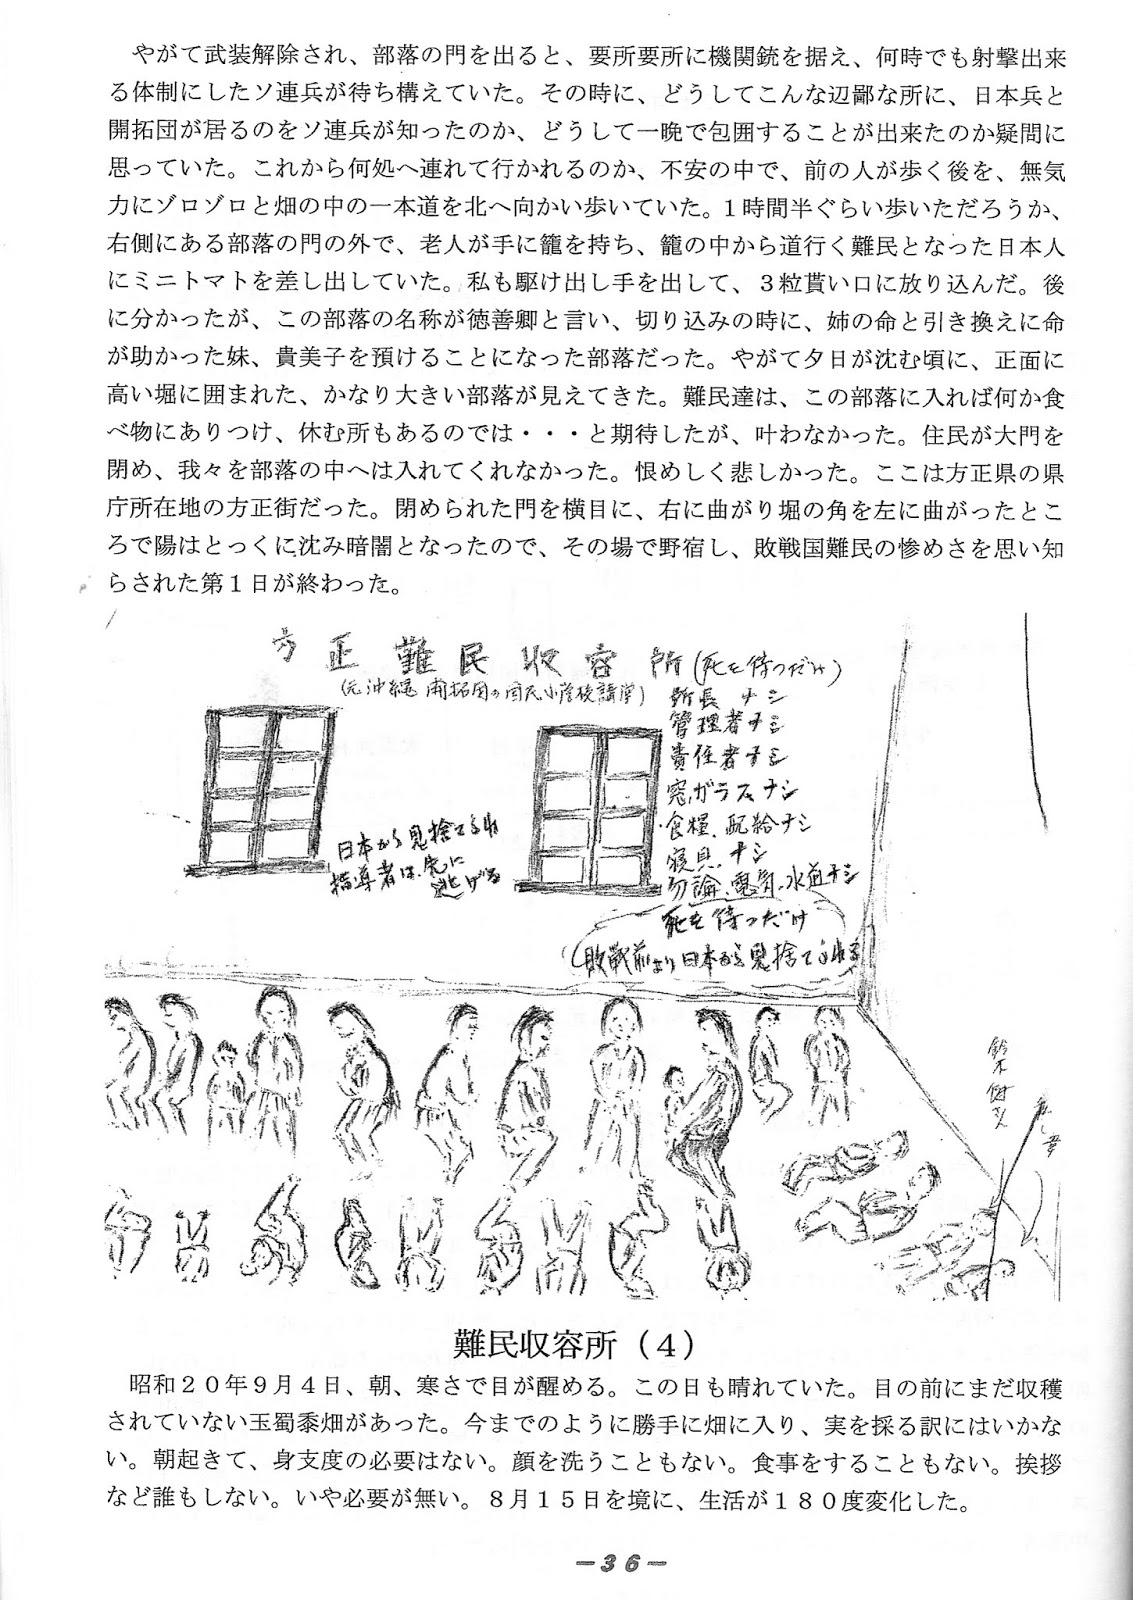 やがて武装解除され、部落の門を出ると、要所要所に機関銃を据え、何時でも射撃出来
る体制にしたソ連兵が待ち構えていた。その時に、どうしてこんな辺鄙な所に、日本兵と
開拓団が居るのをソ連兵が知ったのか、どうして一晩で包囲することが出来たのか疑問に
思っていた。これから何処へ連れて行かれるのか、不安の中で、前の人が歩く後を、無気
力にゾロゾロと畑の中の一本道を北へ向かい歩いていた。１時間半ぐらい歩いただろうか、
右側にある部落の門の外で、老人が手に籠を持ち、籠の中から道行く難民となった日本人
にミニトマトを差し出していた。私も駆け出し手を出して、３粒貰い口に放り込んだ。後
に分かったが、この部落の名称が徳善卿と言い、切り込みの時に、姉の命と引き換えに命
が助かった妹、貴美子を預けることになった部落だった。やがて夕日が沈む頃に、正面に
高い堀に囲まれた、かなり大きい部落が見えてきた。難民達は、この部落に入れば何か食
べ物にありつけ、休む所もあるのでは・・・と期待したが、叶わなかった。住民が大門を
閉め、我々を部落の中へは入れてくれなかった。恨めしく悲しかった。ここは方正県の県
庁所在地の方正街だった。閉められた門を横目に、右に曲がり堀の角を左に曲がったとこ
ろで陽はとっくに沈み暗闇となったので、その場で野宿し、敗戦国難民の惨めさを思い知
らされた第１日が終わった。
方正難民収容所(死を待つだけ)
(元沖縄開拓団の国民小学校講堂)
所長ナシ
管理者ナシ
責任者ナシ
窓ガラスナシ
食糧、配給ナシ
寝具ナシ
勿論、電気、水道ナシ
死を待つだけ
(敗戦前より日本から見捨てられる
日本から見捨てられ
指導者は、先に
逃げる
鈴木
さん
難民収容所（４）
昭和２０年９月４日、朝、寒さで目が醒める。この日も晴れていた。目の前にまだ収穫
されていない玉蜀黍畑があった。今までのように勝手に畑に入り、実を採る訳にはいかな
い。朝起きて、身支度の必要はない。顔を洗うこともない。食事をすることもない。挨拶
など誰もしない。いや必要が無い。８月１５日を境に、生活が１８０度変化した。
－３６－